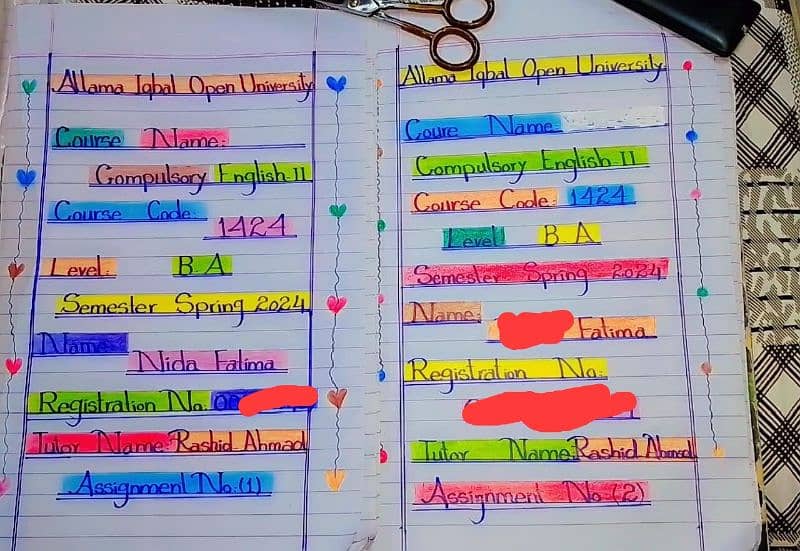 Allama Iqbal Open University
Course Name:
Compulsory English-II
Course Code:
1424
Level: B.A
Semester Spring 2024
Name:
Nida Fatima
Registration No: 00
Tutor Name: Rashid Ahmad
Assignment No.(1)
Allama Iqbal Open University
Coure Name
Compulsory English II
Course Code: 1424
Level: B.A
Semester Spring 2024
Name:
Fatima
Registration No:
Tutor Name: Rashid Ahmad
Assignment No.(2)